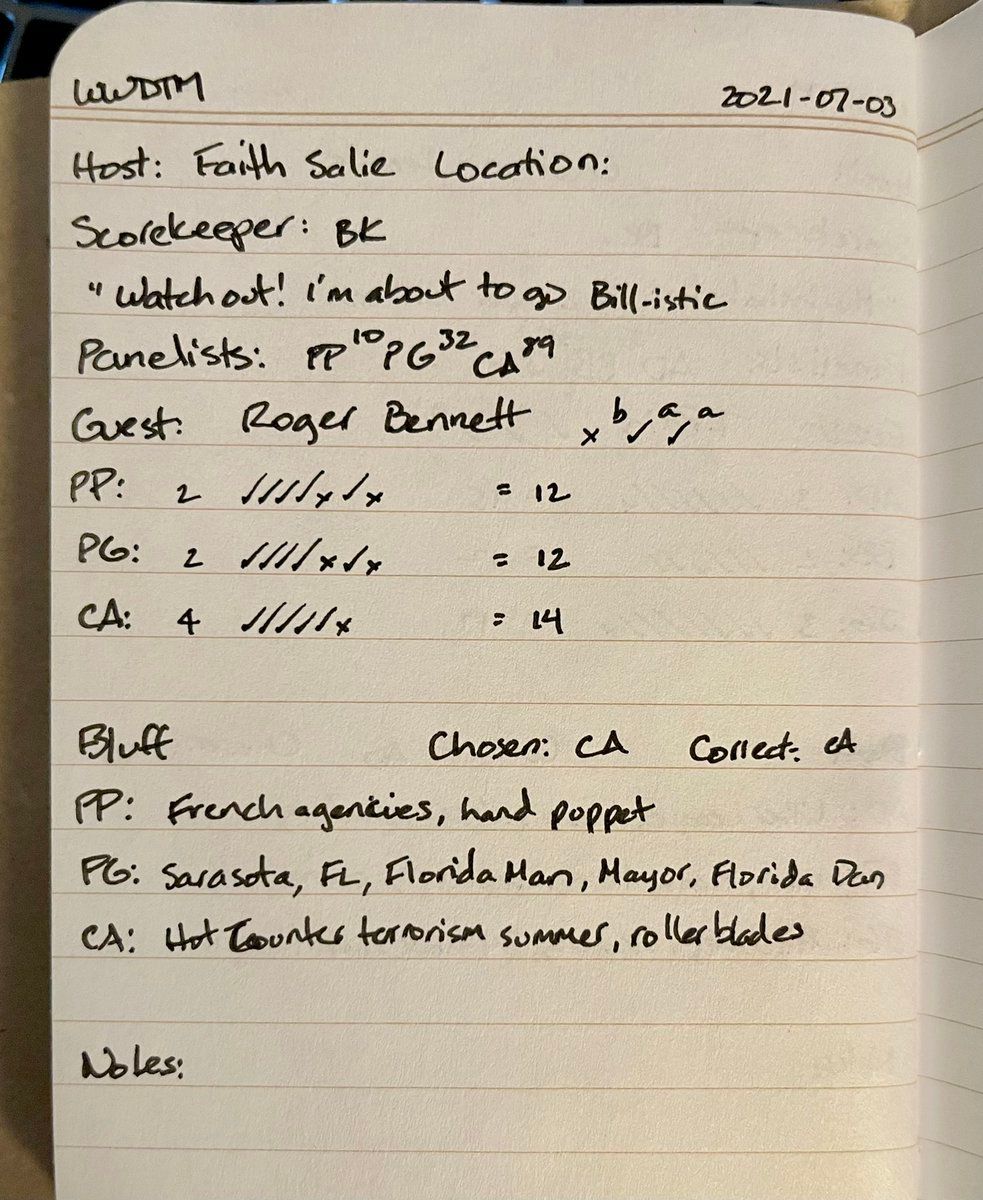 WWDTM 2021-07-03
Host: Faith Salie Location:
Scorekeeper: BK
"Watch out! I'm about to go Bill-istic
Panelists: PP 10 PG 32 CA 89
Guest: Roger Bennett x b ✓ a ✓ a
PP: 2 ✓✓✓✓x✓x = 12
PG: 2 ✓✓✓✓x✓x = 12
CA: 4 ✓✓✓✓✓x = 14
Bluff Chosen: CA Correct: CA
PP: French agencies, hand puppet
PG: Sarasota, FL, Florida Man, Mayor, Florida Dan
CA: Hot Counter terrorism summer, rollerblades
Notes: